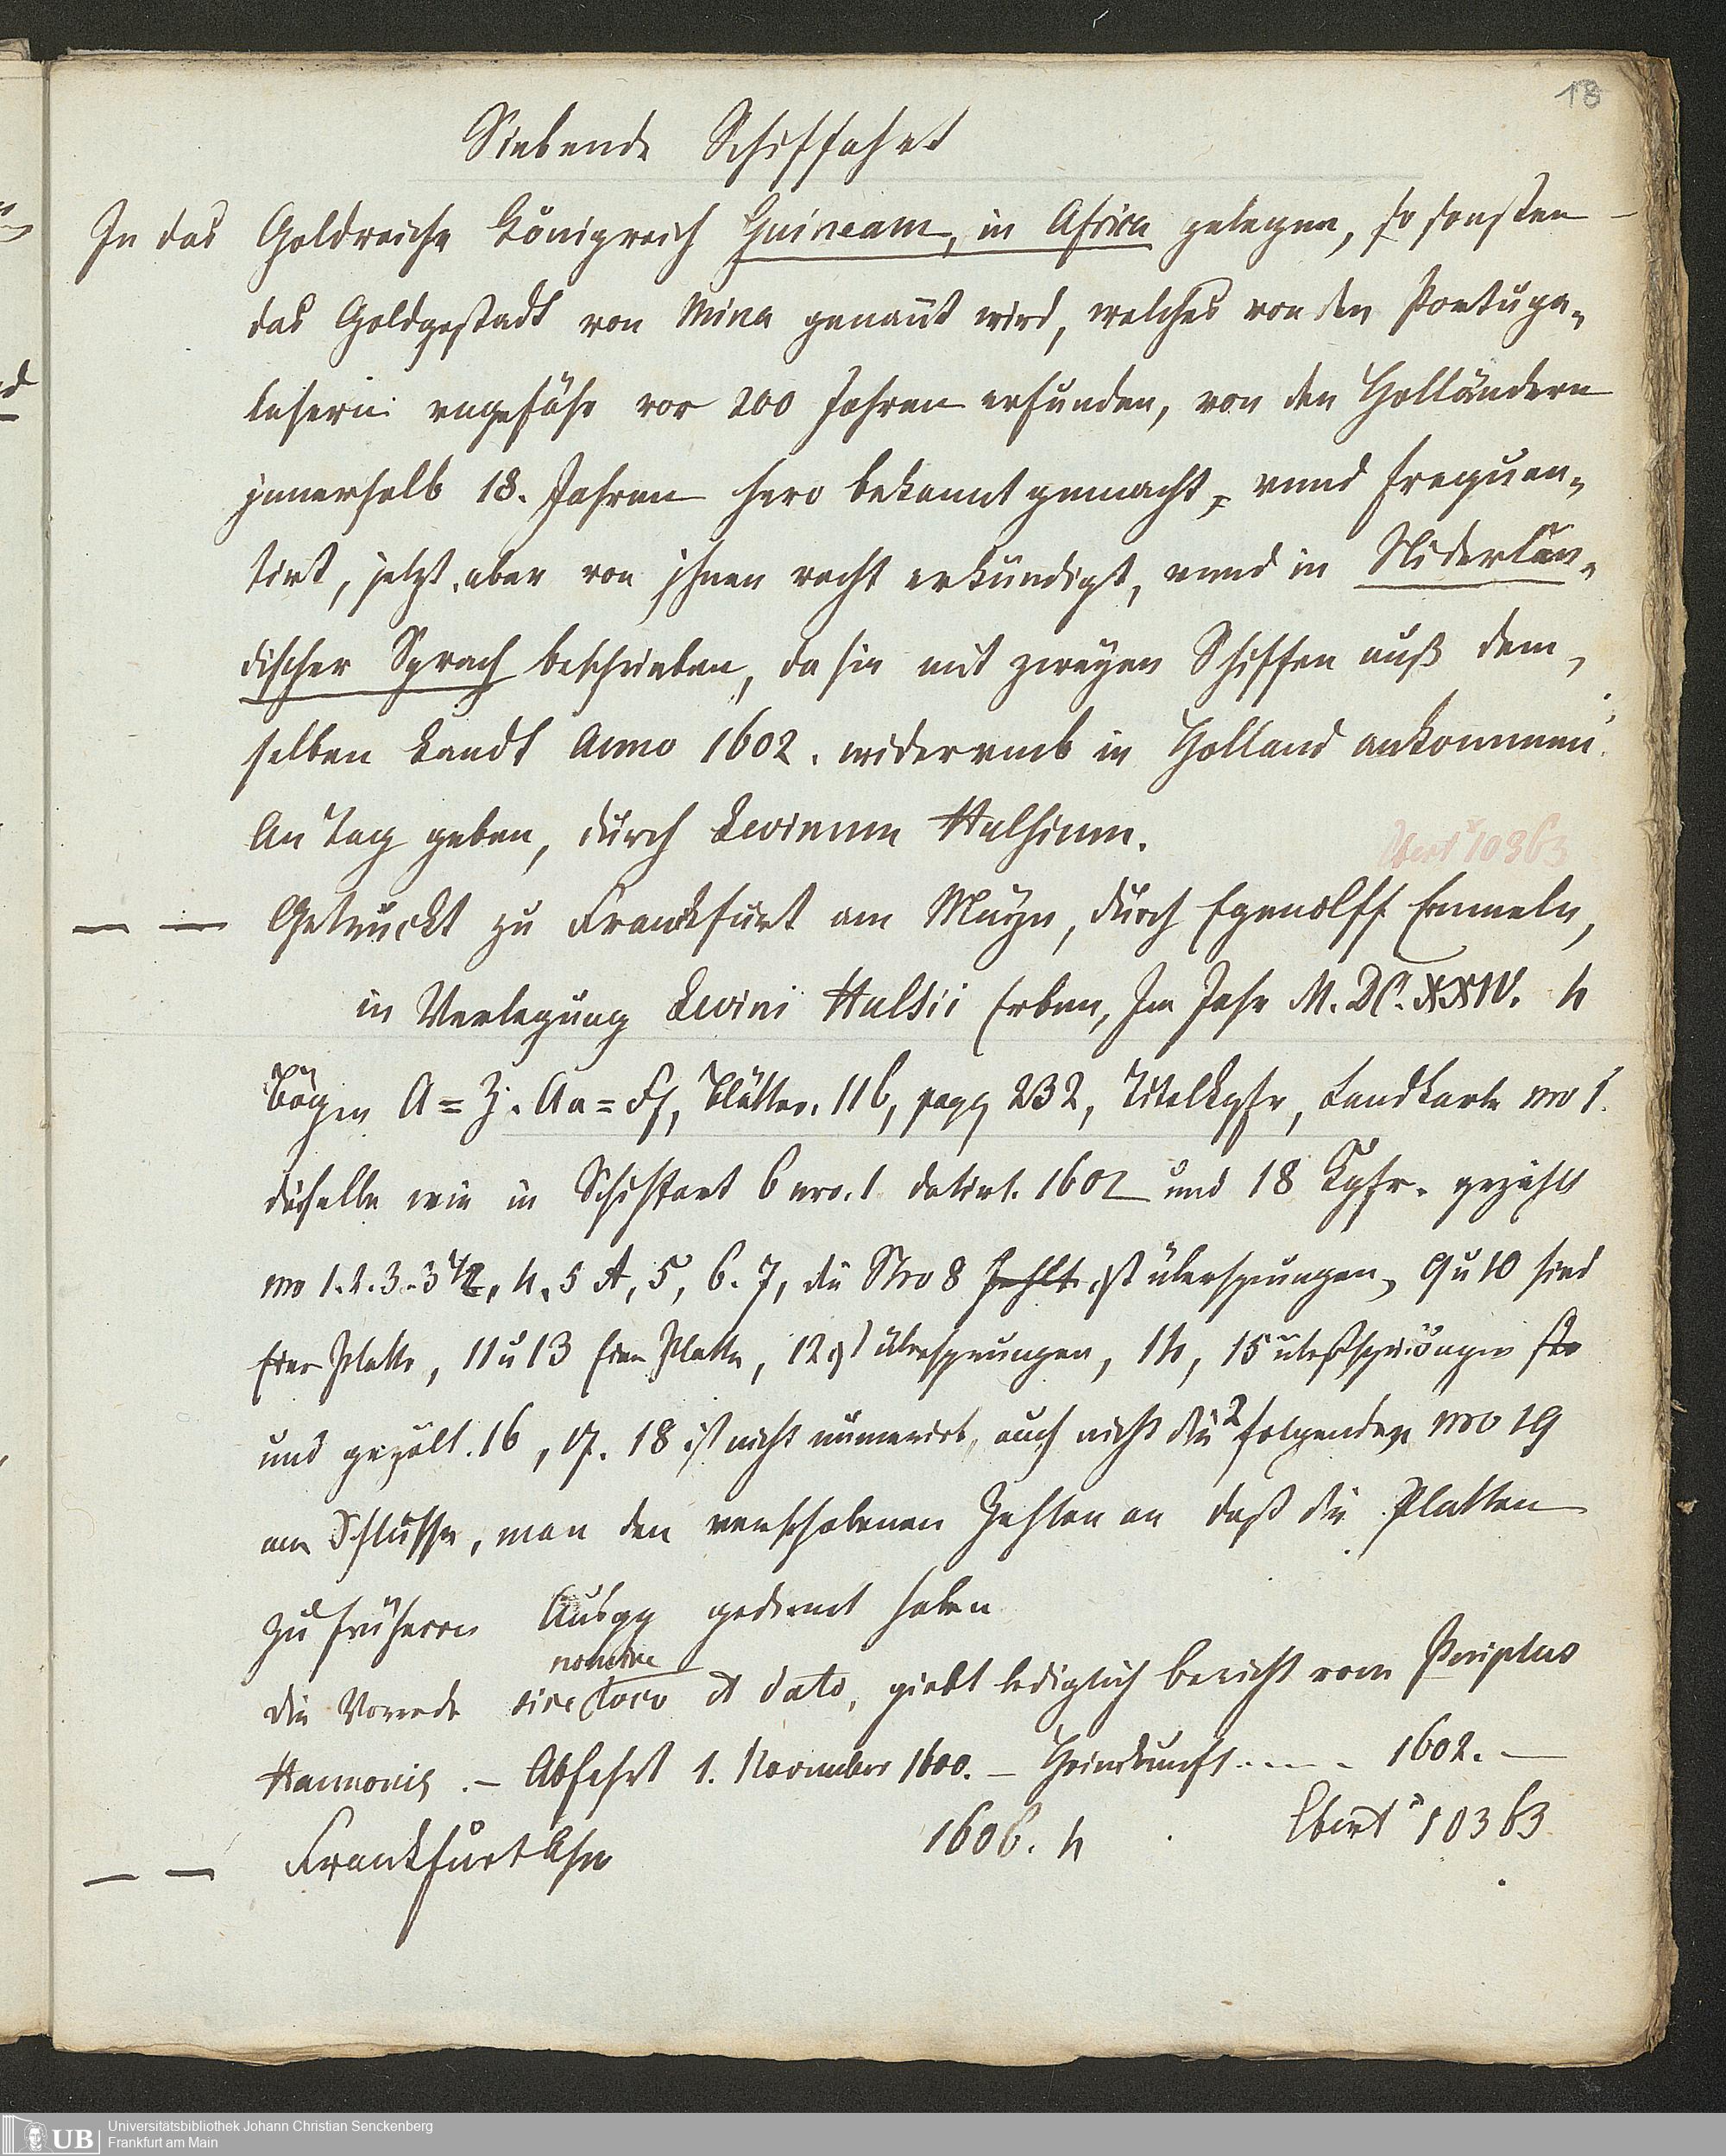 18
Siebende Schiffahrt
In das Goldreiche Königreich Guineam, in Africa gelegen, so sonsten
das Goldgestadt von Mina genañt wird, welches von den Portuga-
lesern vngefähr vor 200 Jahren erfunden, von den Holländern
jnnerhalb 18. Jahren hero bekannt gemacht, vnnd frequen-
tirt, jetzt aber von jhnen recht erkündigt, vnnd in Niderlän-
discher Sprach beschrieben, da sie mit zweyen Schiffen auß dem-
selben Landt Anno 1602. widervmb in Holland ankommen.
An Tag geben, durch Levinum Hulsium.
Ebert 10363
— — Getruckt zu Franckfurt am Mayn, durch Egenolff Emmeln,
in Verlegung Levini Hulsii Erben, Im Jahr M. DC. XXIV. 4
Bögen A=Z. Aa=Ff, Blätter. 116, pagg 232, Titelkpfr, Landkarte nro 1.
dieselbe wie in Schiffart 6 nro. 1 datirt. 1602 und 18 Kpfr. gezählt
nro 1. 2. 3. 3 1/2, 4. 5 A, 5, 6. 7, die Nro 8 fehlt ist übersprungen, 9 u 10 sind
Eine Platte, 11 u 13 Eine Platte, 12 ist übersprungen, 14, 15 übersprungen
und gezält. 16, 17. 18 ist nicht numerirt, auch nicht die 2 folgenden nro 19
am Schlusse, man den verschobenen Zahlen an daß die Platten
zu frühern Ausgg gedient haben
nomine
die Vorrede sine loco et dato, giebt lediglich bericht vom Periplus
Hannonis. — Abfahrt 1. November 1600. — Heimkunft . . . . 1602. —
— — Frankfurt 1606. 4 Ebert 10363
Universitätsbibliothek Johann Christian Senckenberg
UB Frankfurt am Main